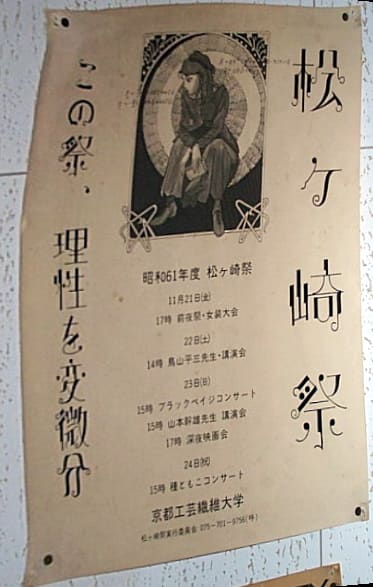 松ヶ崎祭
この祭、理性を変微分
昭和61年度 松ヶ崎祭
11月21日(金)
17時 前夜祭・女装大会
22日(土)
14時 鳥山平三先生・講演会
23日(日)
15時 ブラックペイジコンサート
15時 山本幹雄先生 講演会
17時 深夜映画会
24日(祝)
15時 種ともこコンサート
京都工芸繊維大学
松ヶ崎祭実行委員会 075-701-9756(呼)